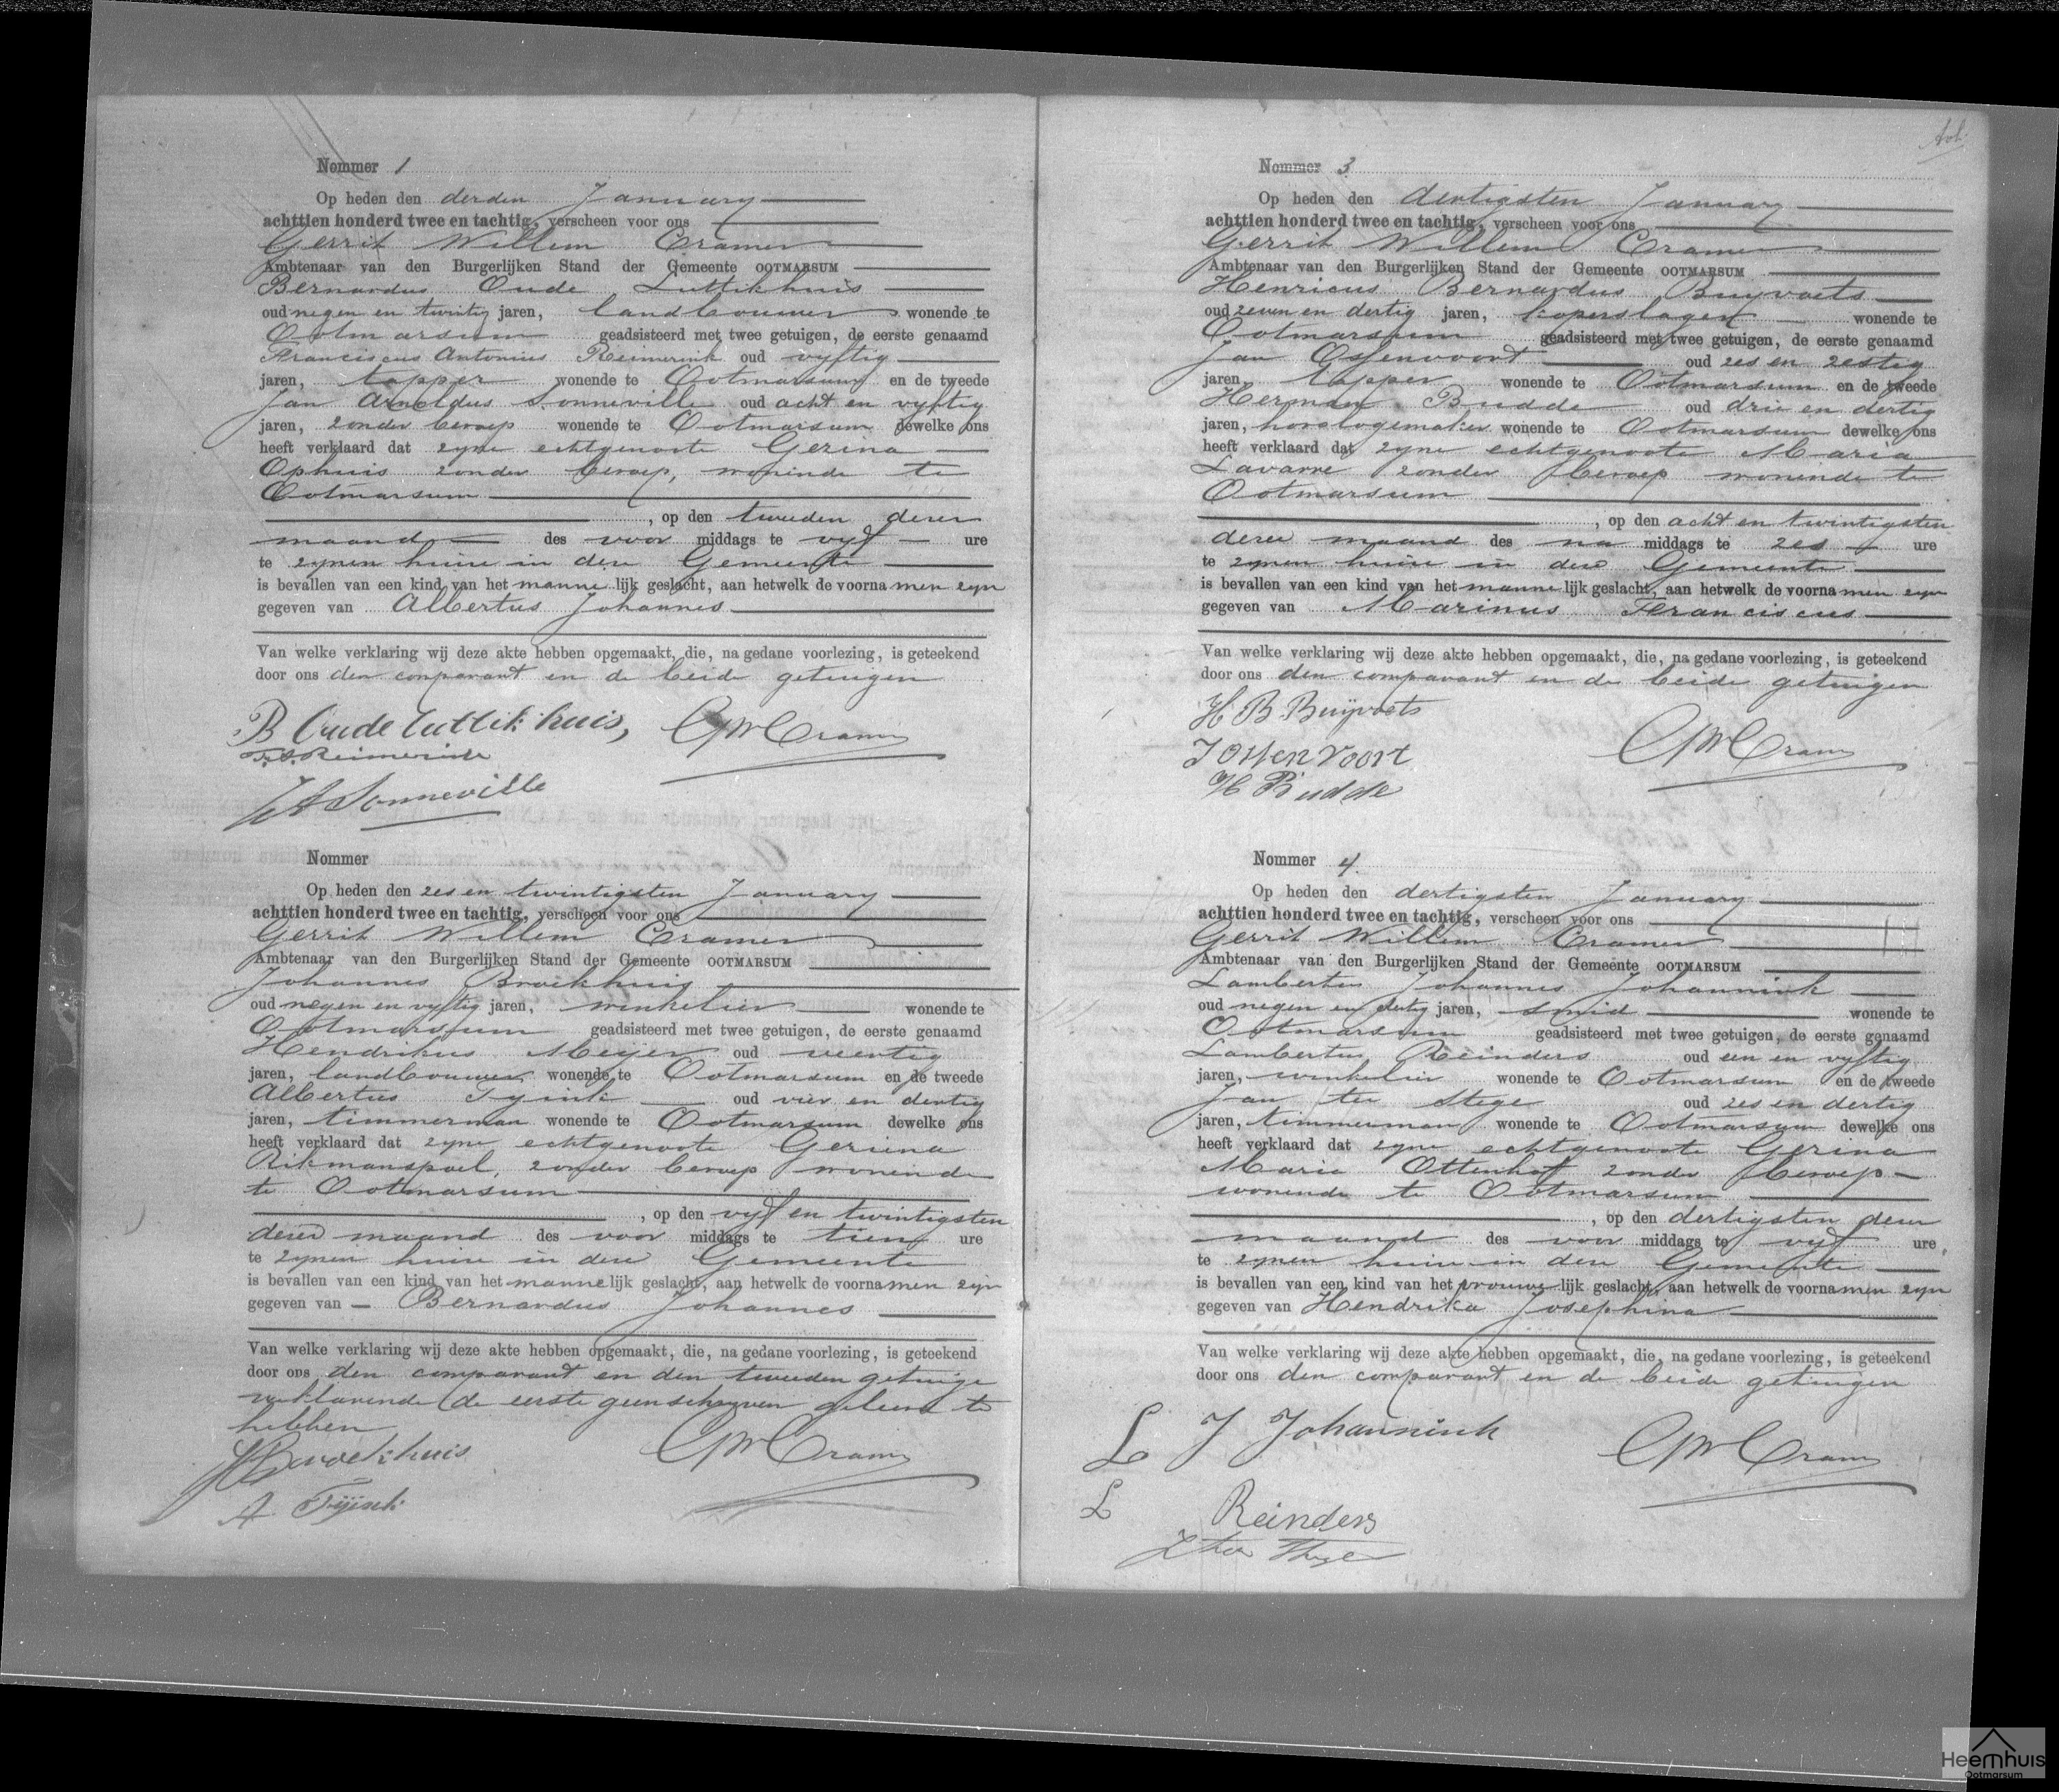 Nommer 1
Op heden den derden January
achttien honderd twee en tachtig, verscheen voor ons
Gerrit Willem Cramer
Ambtenaar van den Burgerlijken Stand der Gemeente OOTMARSUM
Bernardus Oude Luttikhuis
oud negen en twintig jaren, landbouwer wonende te
Ootmarsum geadsisteerd met twee getuigen, de eerste genaamd
Franciscus Antonius Reimerink oud vyftig
jaren, tapper wonende te Ootmarsum en de tweede
Jan Arnoldus Sonneville oud acht en vyftig
jaren, zonder beroep wonende te Ootmarsum dewelke ons
heeft verklaard dat zyne echtgenoote Gezina
Ophuis zonder beroep, wonende te
Ootmarsum
, op den tweeden dezer
maand des voor middags te vyf ure
te zynen huize in deze Gemeente
is bevallen van een kind van het mannelijk geslacht, aan hetwelk de voornamen zyn
gegeven van Albertus Johannes
Van welke verklaring wij deze akte hebben opgemaakt, die, na gedane voorlezing, is geteekend
door ons den comparant en de beide getuigen
B Oude Luttikhuis, GWCramer
F.A. Reimerink
JA Sonneville
Nommer
Op heden den zes en twintigsten January
achttien honderd twee en tachtig, verscheen voor ons
Gerrit Willem Cramer
Ambtenaar van den Burgerlijken Stand der Gemeente OOTMARSUM
Johannes Broekhuis
oud negen en vyftig jaren, winkelier wonende te
Ootmarsum geadsisteerd met twee getuigen, de eerste genaamd
Hendrikus Meijer oud veertig
jaren, landbouwer wonende te Ootmarsum en de tweede
Albertus Tyink oud vier en dertig
jaren, timmerman wonende te Ootmarsum dewelke ons
heeft verklaard dat zyne echtgenoote Gezina
Rikmanspoel, zonder beroep wonende
te Ootmarsum
, op den vyf en twintigsten
dezer maand des voor middags te tien ure
te zynen huize in deze Gemeente
is bevallen van een kind van het mannelijk geslacht, aan hetwelk de voornamen zyn
gegeven van Bernardus Johannes
Van welke verklaring wij deze akte hebben opgemaakt, die, na gedane voorlezing, is geteekend
door ons den comparant en den tweeden getuige
verklarende de eerste geen schryven geleerd te
hebben
JBroekhuis GWCramer
A. Tijink
Nommer 3
Op heden den dertigsten January
achttien honderd twee en tachtig, verscheen voor ons
Gerrit Willem Cramer
Ambtenaar van den Burgerlijken Stand der Gemeente OOTMARSUM
Henricus Bernardus Buyvoets
oud zeven en dertig jaren, koperslager wonende te
Ootmarsum geadsisteerd met twee getuigen, de eerste genaamd
Jan Ossenvoort oud zes en zestig
jaren, tapper wonende te Ootmarsum en de tweede
Herman Budde oud drie en dertig
jaren, horologemaker wonende te Ootmarsum dewelke ons
heeft verklaard dat zyne echtgenoote Maria
Lavarre zonder beroep wonende te
Ootmarsum
, op den acht en twintigsten
dezer maand des na middags te zes ure
te zynen huize in deze Gemeente
is bevallen van een kind van het mannelijk geslacht, aan hetwelk de voornamen zyn
gegeven van Marinus Franciscus
Van welke verklaring wij deze akte hebben opgemaakt, die, na gedane voorlezing, is geteekend
door ons den comparant en de beide getuigen
H B Buijvoets
J Ossenvoort GWCramer
H Budde
Nommer 4.
Op heden den dertigsten January
achttien honderd twee en tachtig, verscheen voor ons
Gerrit Willem Cramer
Ambtenaar van den Burgerlijken Stand der Gemeente OOTMARSUM
Lambertus Johannes Johannink
oud negen en dertig jaren, smid wonende te
Ootmarsum geadsisteerd met twee getuigen, de eerste genaamd
Lambertus Reinders oud een en vyftig
jaren, winkelier wonende te Ootmarsum en de tweede
Jan ter Stege oud zes en dertig
jaren, timmerman wonende te Ootmarsum dewelke ons
heeft verklaard dat zyne echtgenoote Gezina
Maria Ottenhof zonder beroep
wonende te Ootmarsum
, op den dertigsten dezer
maand des voor middags te vyf ure
te zynen huize in deze Gemeente
is bevallen van een kind van het vrouwelijk geslacht, aan hetwelk de voornamen zyn
gegeven van Hendrika Josephina
Van welke verklaring wij deze akte hebben opgemaakt, die, na gedane voorlezing, is geteekend
door ons den comparant en de beide getuigen
L J Johannink GWCramer
L Reinders
J ter Stege
Heemhuis
Ootmarsum